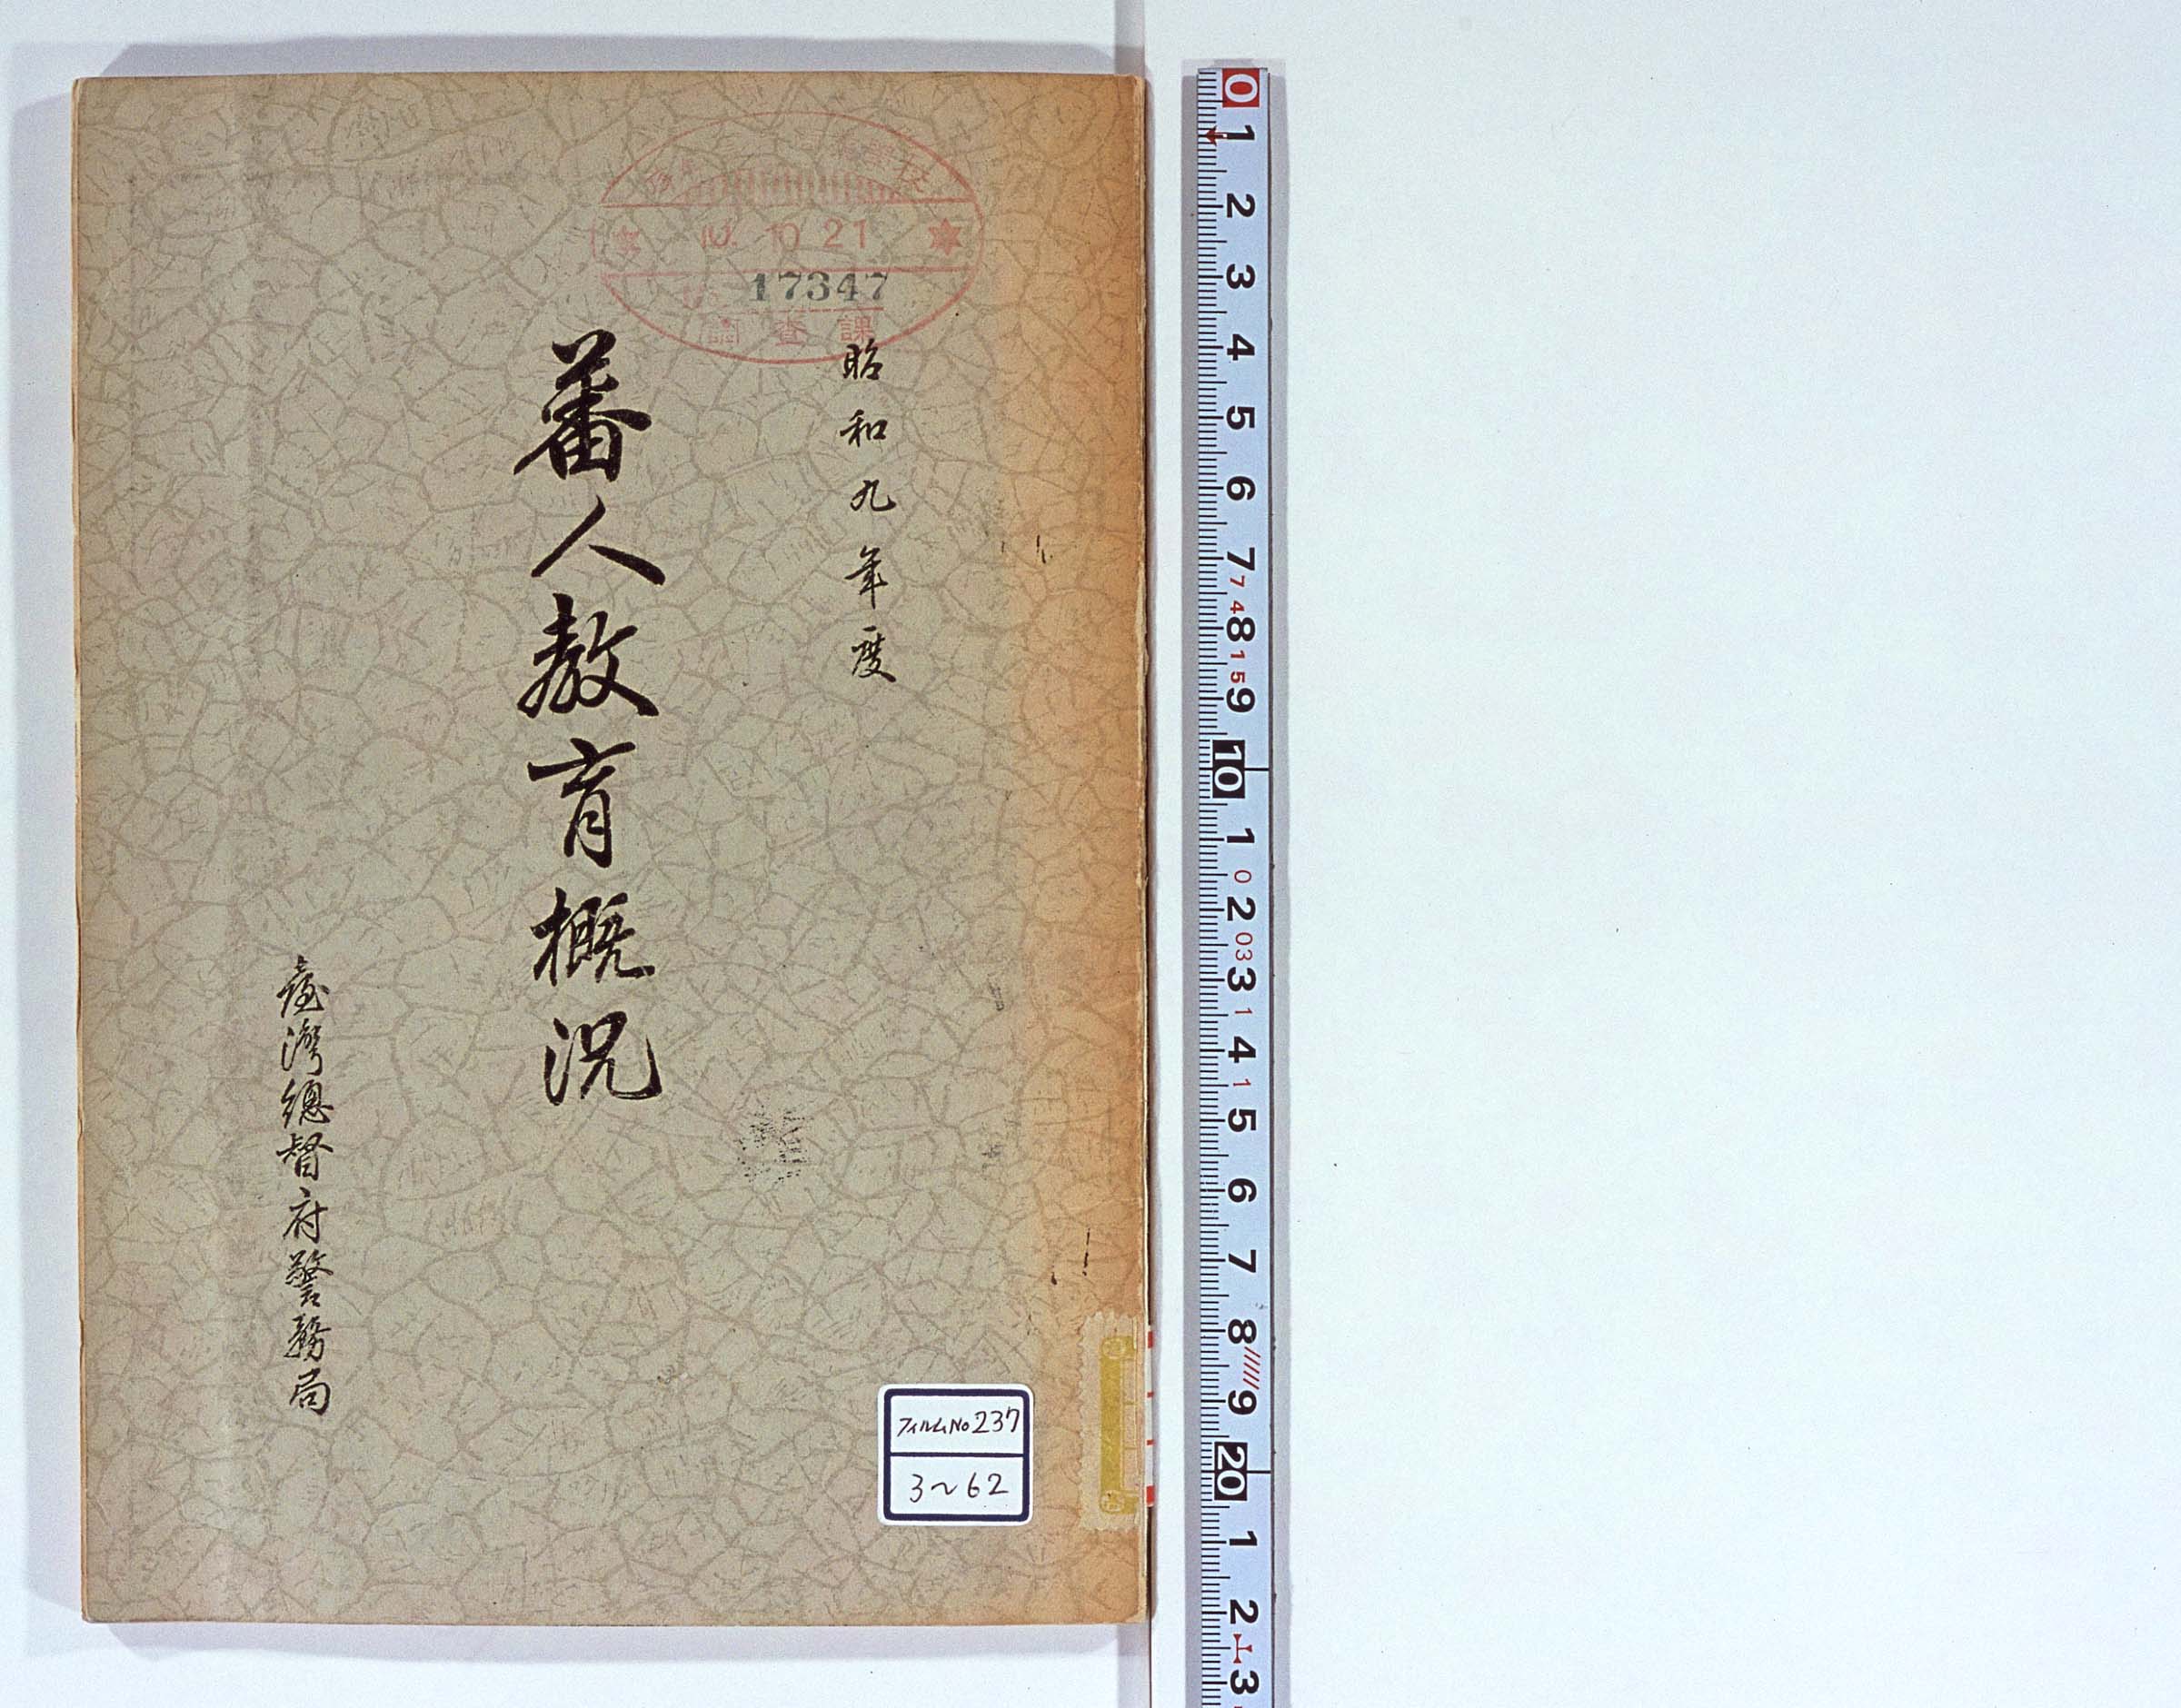 10. 10 21
17347
調査課
昭和九年度
蕃人教育概況
臺灣總督府警務局
フィルムNo 237
3～62
0
1
2
3
4
5
6
7
7
4
8
1
5
9
10
1
0
2
03
3
1
4
1
5
6
7
8
9
20
1
2
3